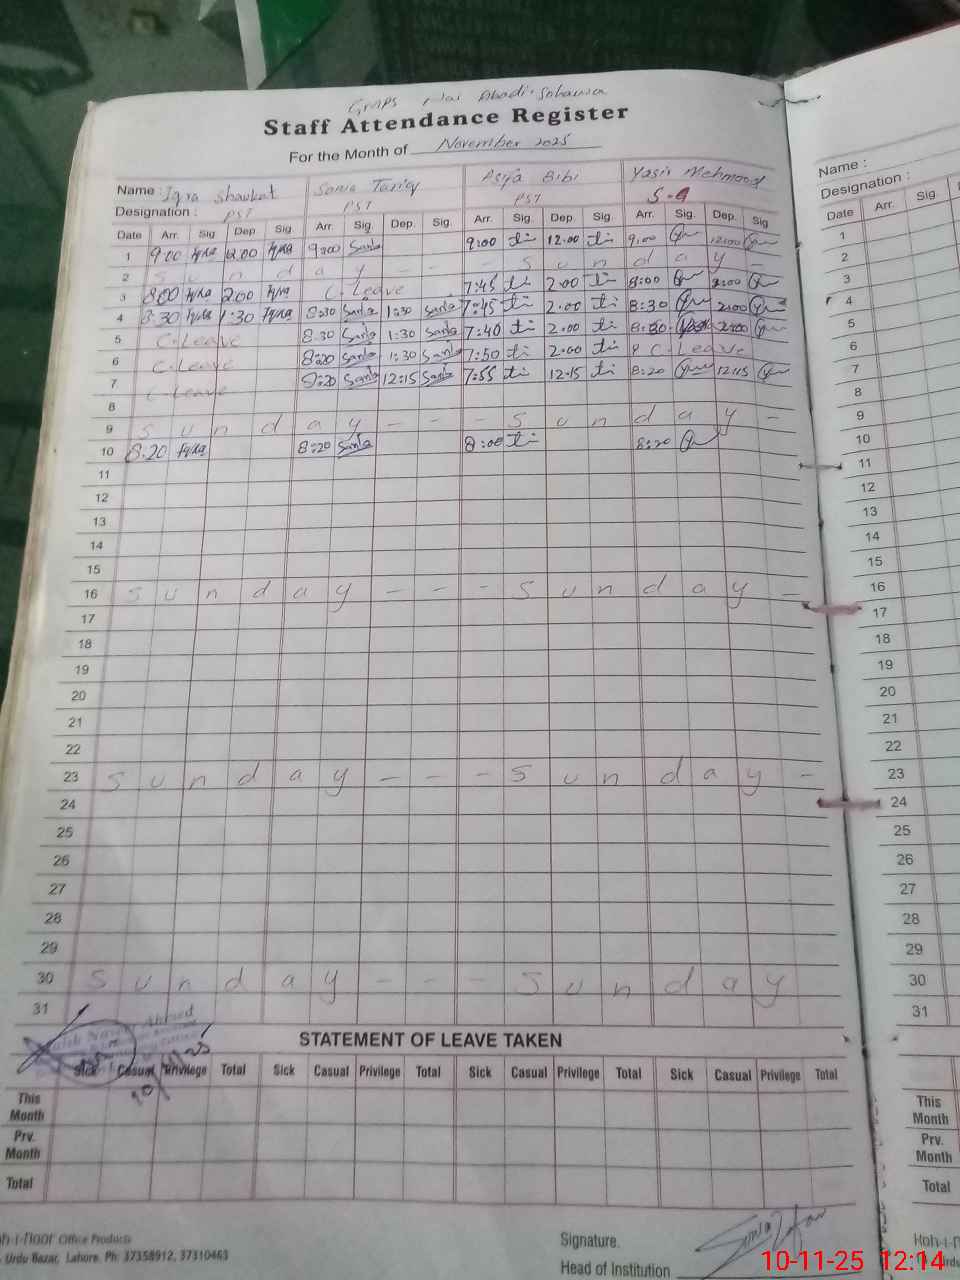 GGPS Nai Abadi Sohawa
Staff Attendance Register
For the Month of November 2025
Name : Iqra Shaukat Sonia Tariq Asifa Bibi Yasir Mehmood
Designation : PST PST PST S-G
Date Arr. Sig Dep. Sig. Arr. Sig. Dep. Sig. Arr. Sig. Dep. Sig. Arr. Sig. Dep. Sig
1 9:00 Iqra 12:00 Iqra 9:00 Sania 9:00 12:00 9:00 12:00
2 S u n d a y - - - S u n d a y -
3 8:00 Iqra 2:00 Iqra C. Leave 7:45 2:00 8:00 2:00
4 8:30 Iqra 1:30 Iqra 8:30 Sania 1:30 Sania 7:45 2:00 8:30 2:00
5 C. Leave 8:30 Sania 1:30 Sania 7:40 2:00 8:30 2:00
6 C. Leave 8:20 Sania 1:30 Sania 7:50 2:00 C. Leave
7 C. Leave 8:20 Sania 12:15 Sania 7:55 12:15 8:20 12:15
8
9 S u n d a y - - - S u n d a y -
10 8:20 Iqra 8:20 Sania 8:00 8:20
11
12
13
14
15
16 S u n d a y - - - S u n d a y -
17
18
19
20
21
22
23 S u n d a y - - - S u n d a y -
24
25
26
27
28
29
30 S u n d a y - - - S u n d a y
31
STATEMENT OF LEAVE TAKEN
Sick Casual Privilege Total Sick Casual Privilege Total Sick Casual Privilege Total Sick Casual Privilege Total
This Month
Prv. Month
Total
Office Products
Urdu Bazar, Lahore. Ph: 37358912, 37310463
Signature.
Head of Institution
10-11-25 12:14
Name :
Designation :
Date Arr. Sig.
1
2
3
4
5
6
7
8
9
10
11
12
13
14
15
16
17
18
19
20
21
22
23
24
25
26
27
28
29
30
31
This Month
Prv. Month
Total